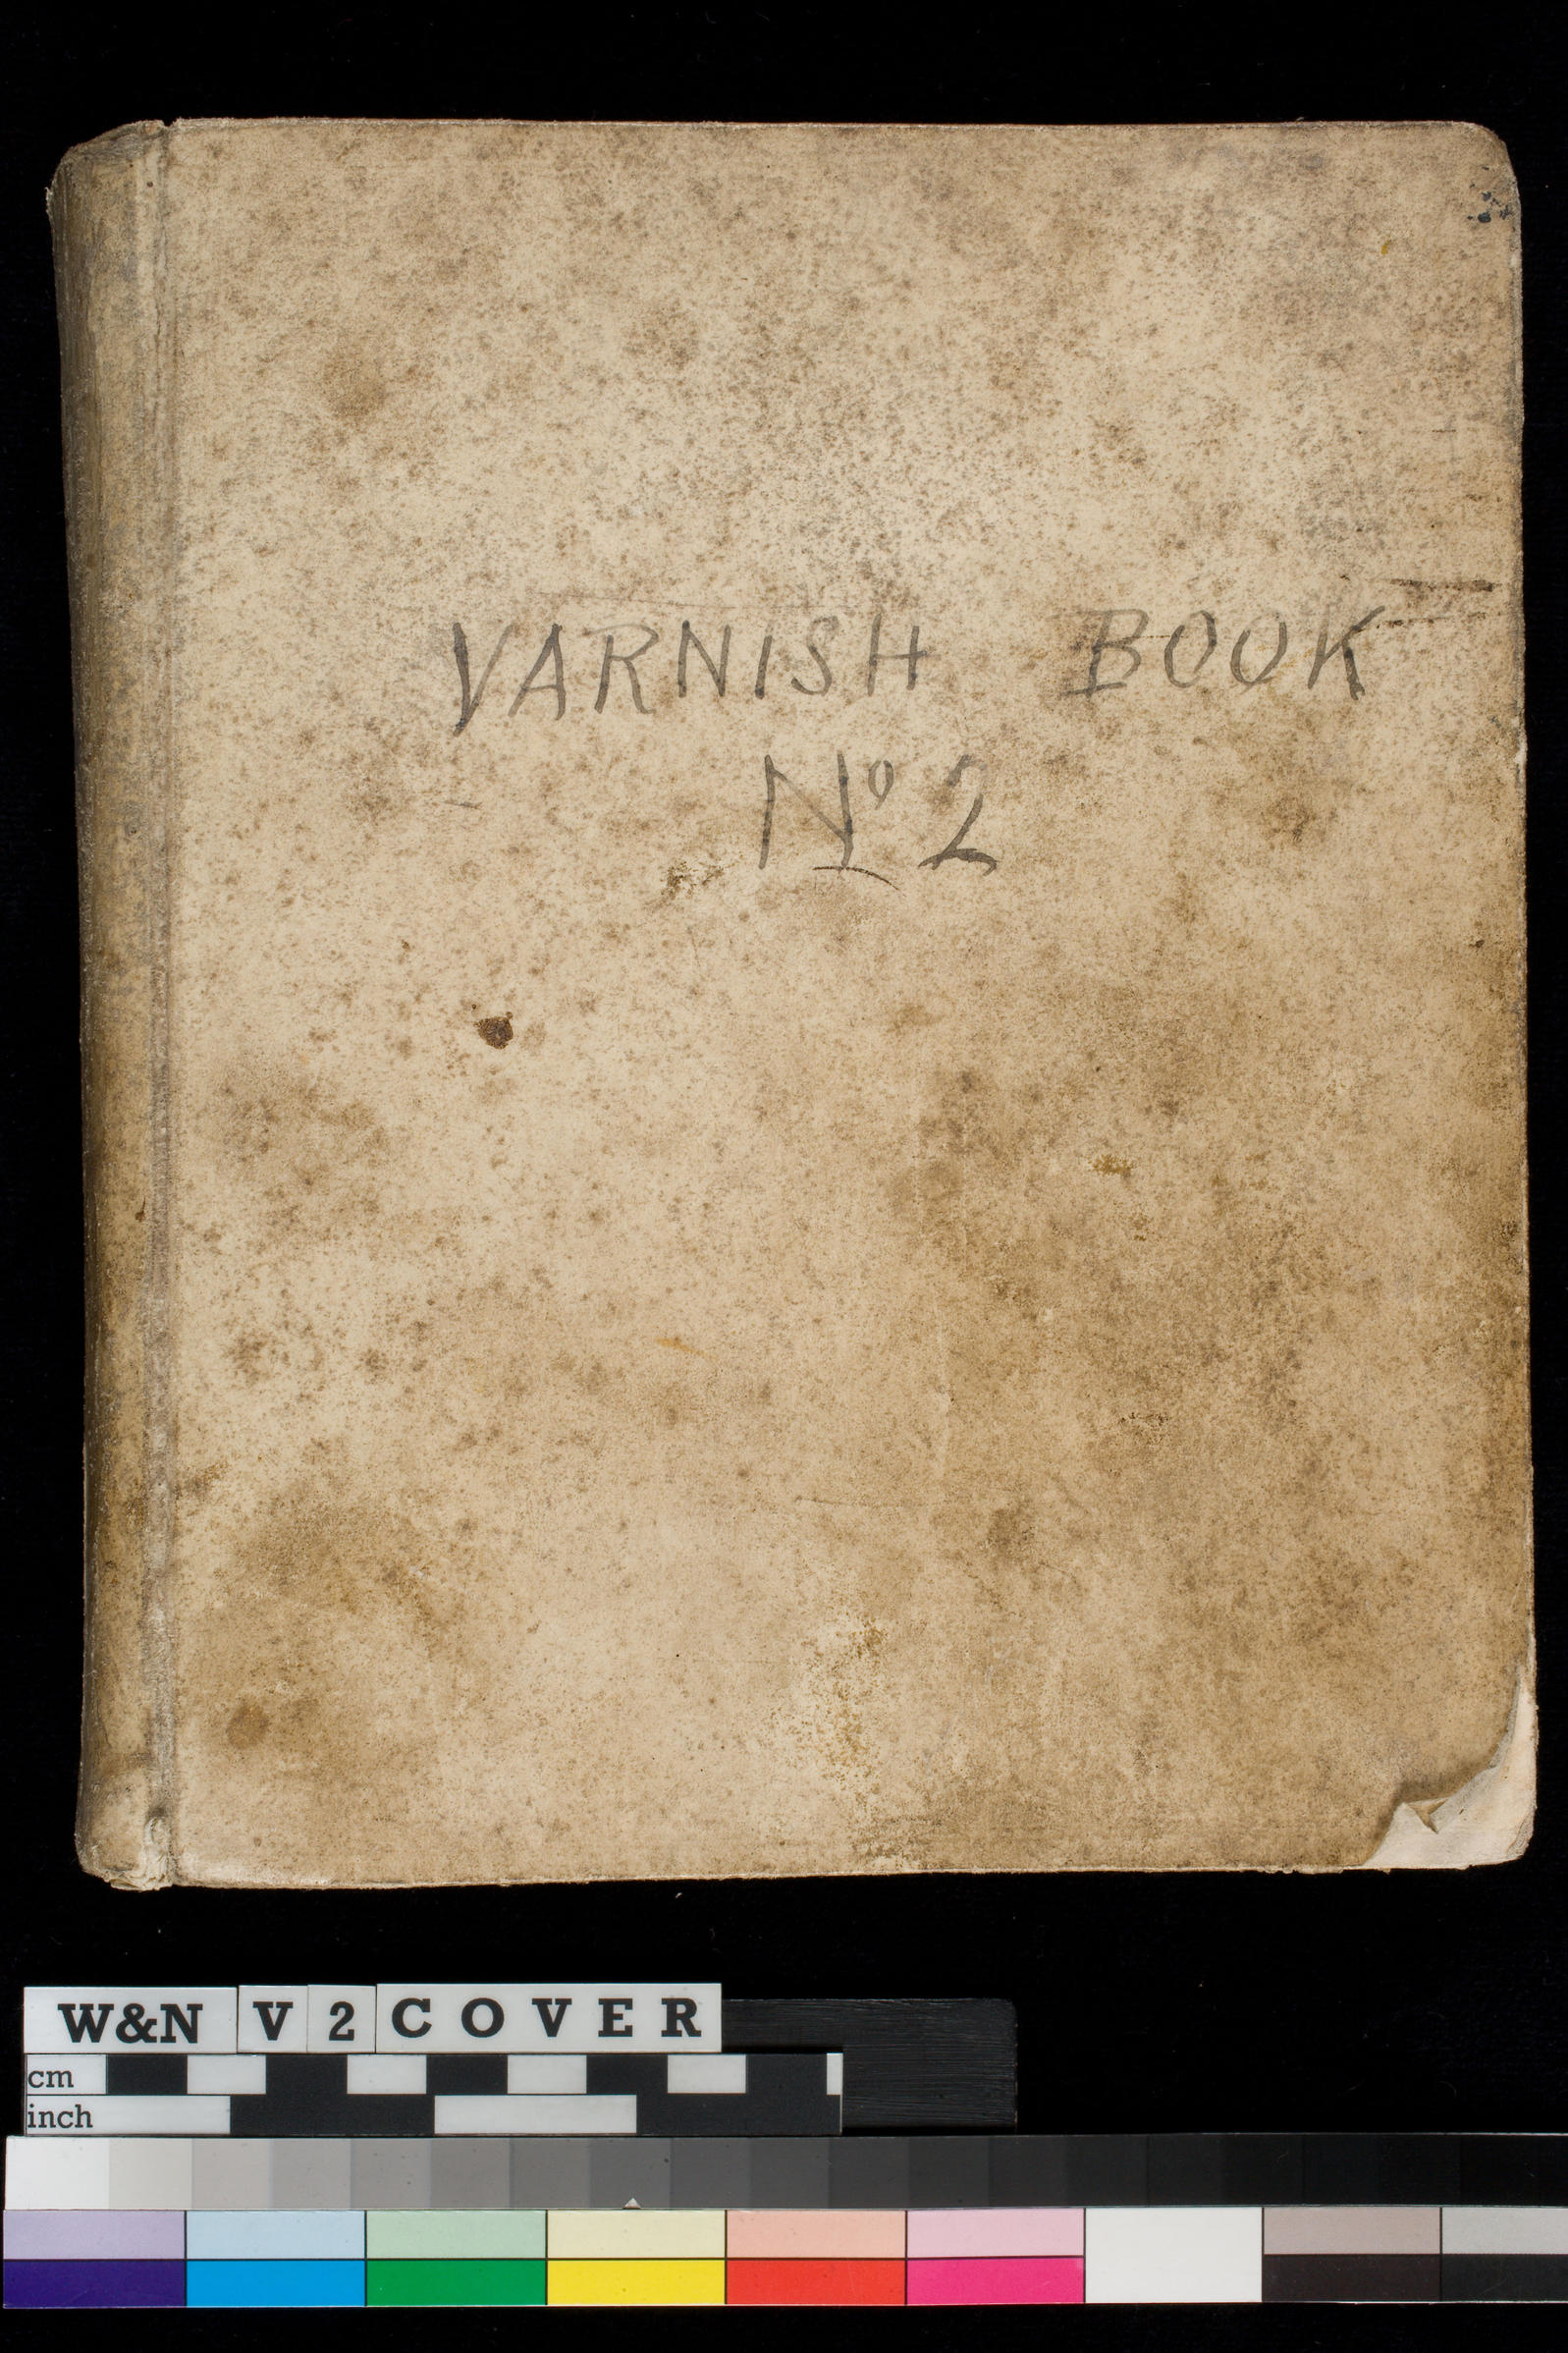 VARNISH BOOK
Nº 2
W&N V 2 COVER
cm
inch